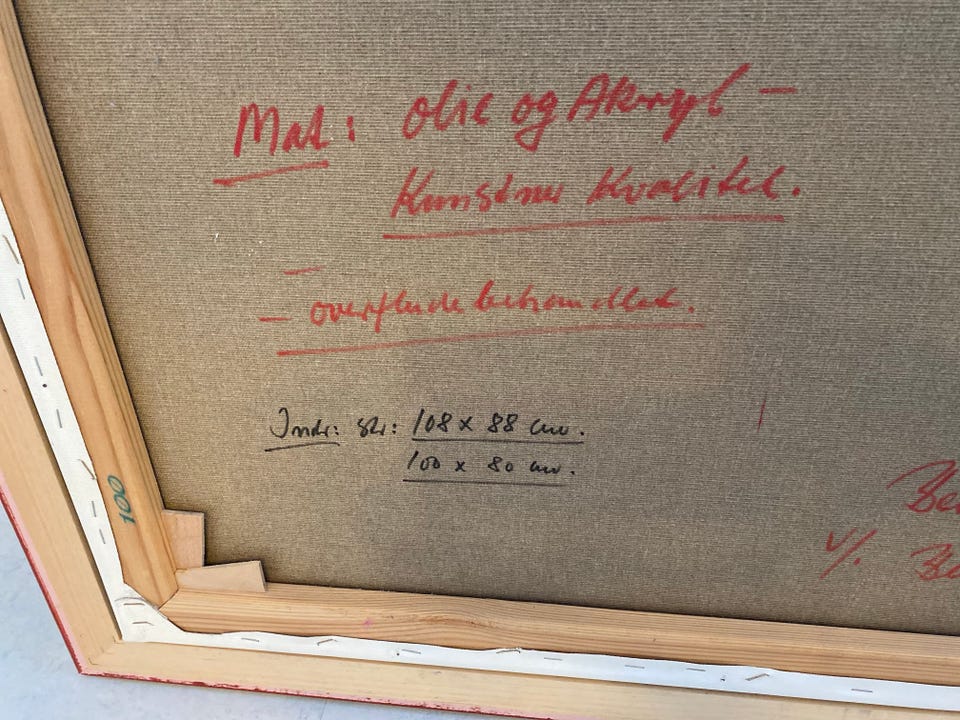 Mat: olie og Akryl —
Kunstner Kvalitet.
— overfladebehandlet.
Indr: str: 108 x 88 cm.
100 x 80 cm.
100
Be
v/. Be